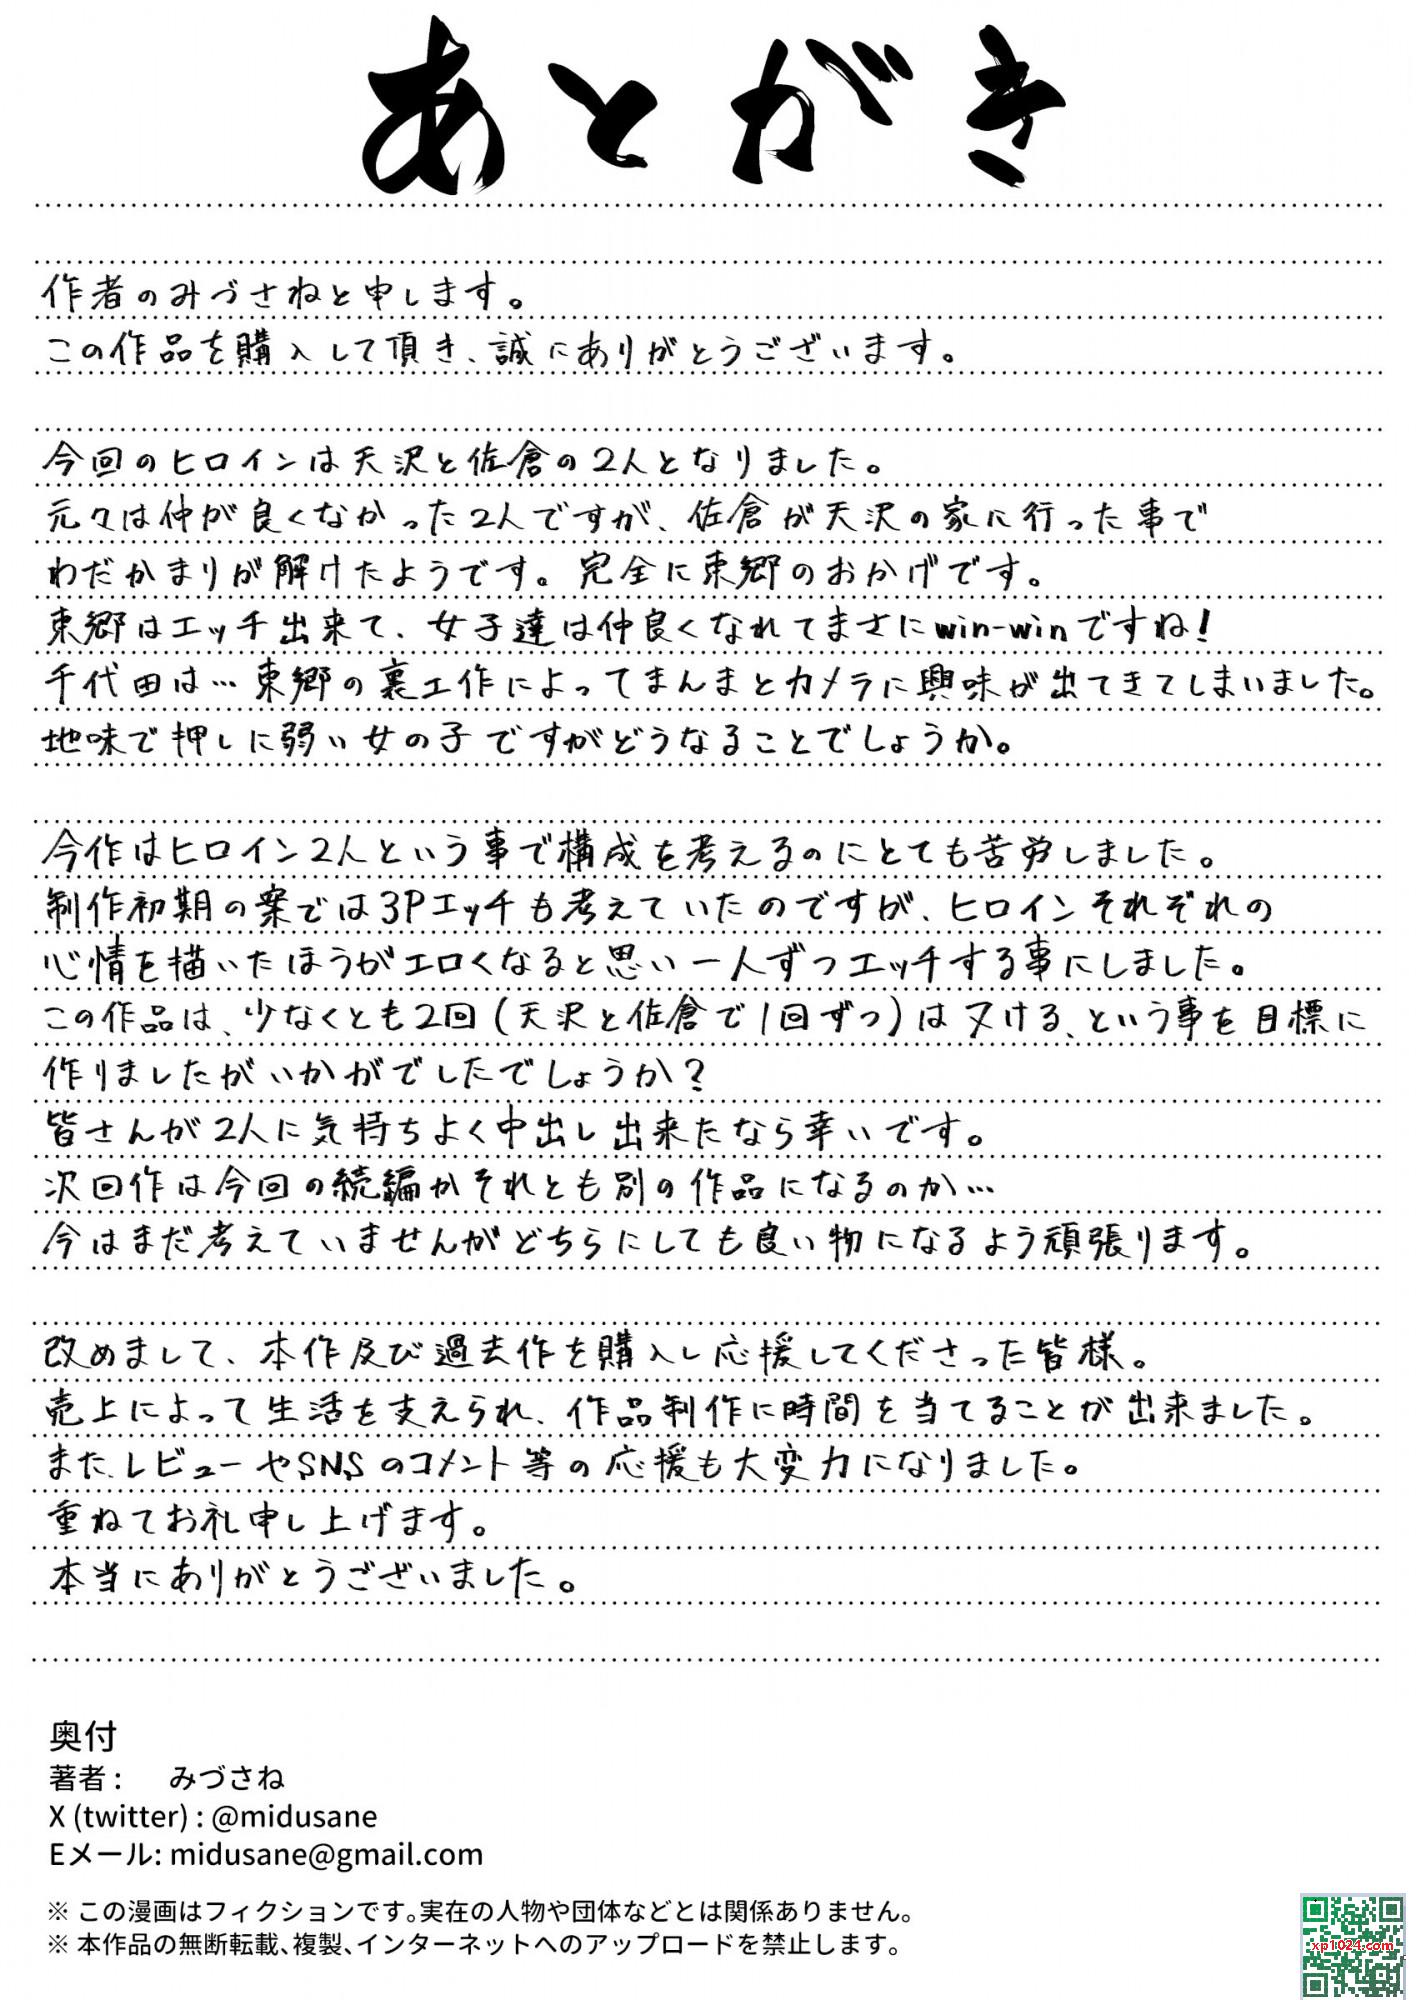 あとがき
作者のみづさねと申します。
この作品を購入して頂き、誠にありがとうございます。
今回のヒロインは天沢と佐倉の2人となりました。
元々は仲が良くなかった2人ですが、佐倉が天沢の家に行った事で
わだかまりが解けたようです。完全に東郷のおかげです。
東郷はエッチ出来て、女子達は仲良くなれてまさにwin-winですね!
千代田は…東郷の裏工作によってまんまとカメラに興味が出てきてしまいました。
地味で押しに弱い女の子ですがどうなることでしょうか。
今作はヒロイン2人という事で構成を考えるのにとても苦労しました。
制作初期の案では3Pエッチも考えていたのですが、ヒロインそれぞれの
心情を描いたほうがエロくなると思い一人ずつエッチする事にしました。
この作品は、少なくとも2回(天沢と佐倉で1回ずつ)はヌける、という事を目標に
作りましたがいかがでしたでしょうか?
皆さんが2人に気持ちよく中出し出来たなら幸いです。
次回作は今回の続編かそれとも別の作品になるのか…
今はまだ考えていませんがどちらにしても良い物になるよう頑張ります。
改めまして、本作及び過去作を購入し応援してくださった皆様。
売上によって生活を支えられ、作品制作に時間を当てることが出来ました。
また、レビューやSNSのコメント等の応援も大変力になりました。
重ねてお礼申し上げます。
本当にありがとうございました。
奥付
著者: みづさね
X (twitter) : @midusane
Eメール: midusane@gmail.com
※ この漫画はフィクションです。実在の人物や団体などとは関係ありません。
※ 本作品の無断転載、複製、インターネットへのアップロードを禁止します。
xp1024.com